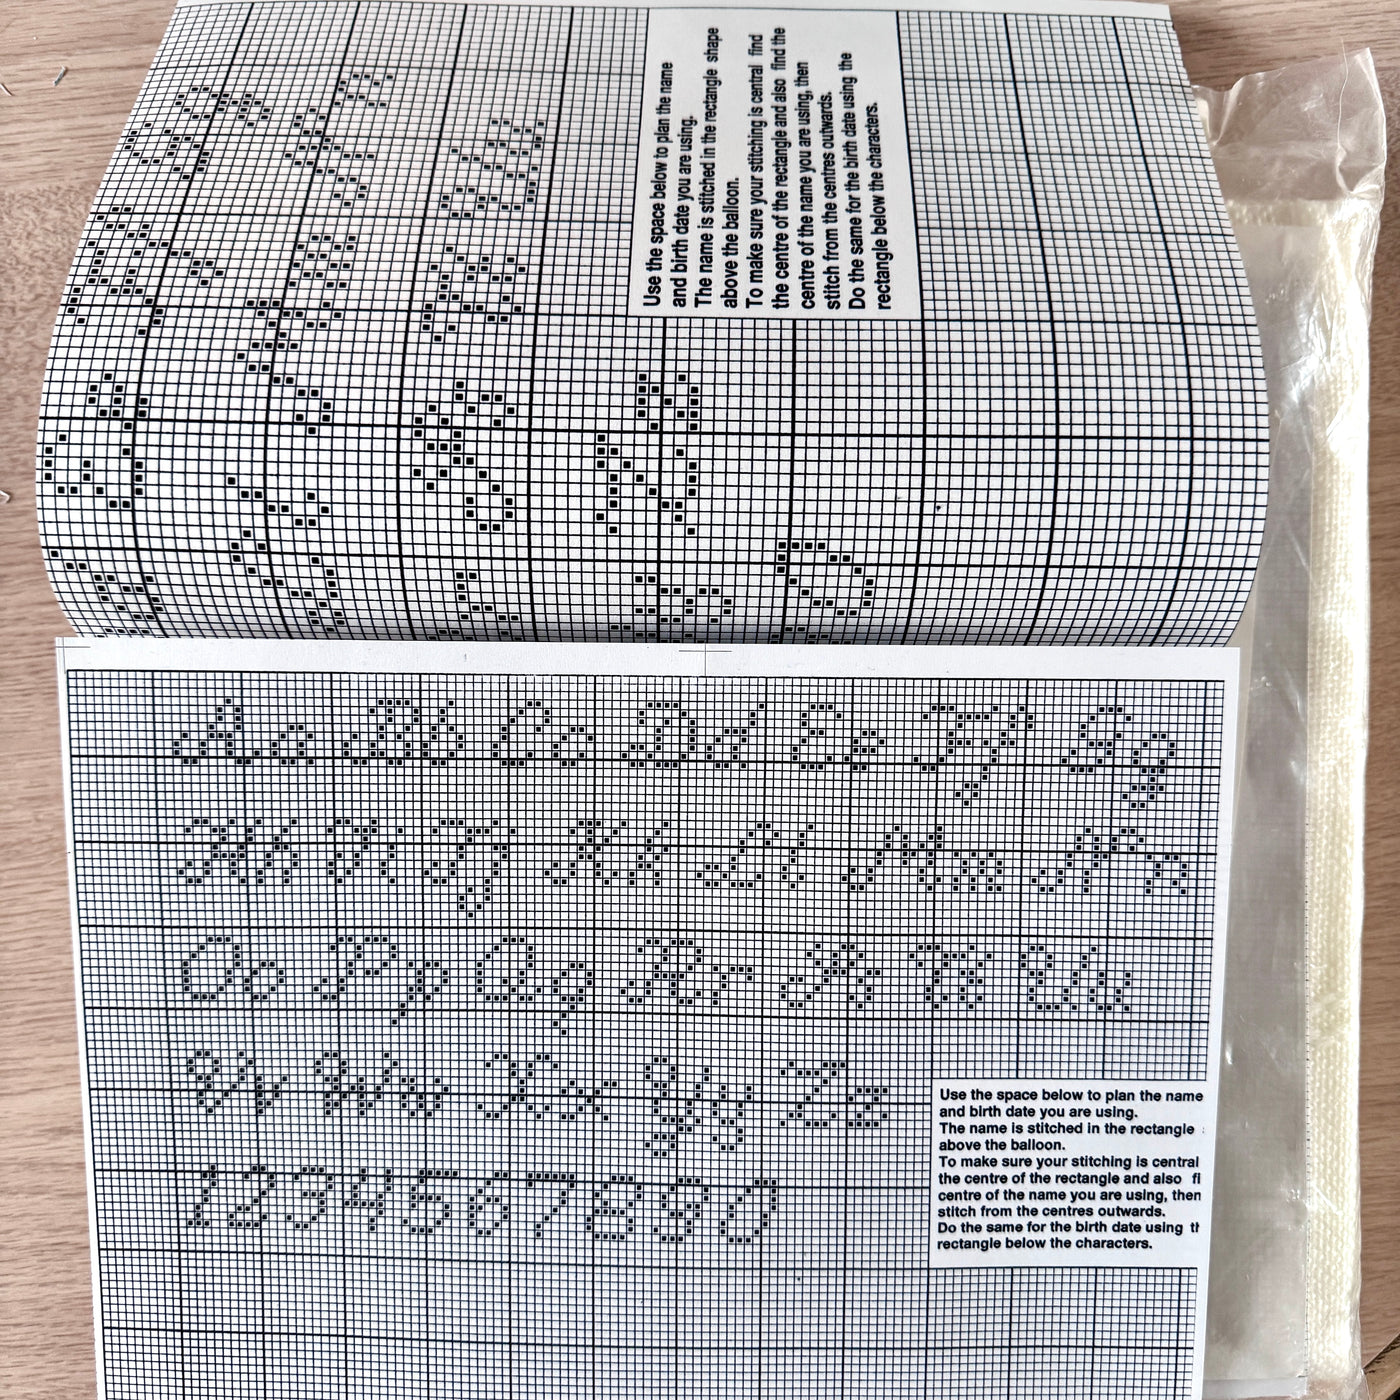 Use the space below to plan the name
and birth date you are using.
The name is stitched in the rectangle shape
above the balloon.
To make sure your stitching is central find
the centre of the rectangle and also find the
centre of the name you are using, then
stitch from the centres outwards.
Do the same for the birth date using the
rectangle below the characters.
Aa Bb Cc Dd Ee Ff Gg
Hh Ii Jj Kk Ll Mm Nn
Oo Pp Qq Rr Ss Tt Uu
Vv Ww Xx Yy Zz
1234567890
Use the space below to plan the name
and birth date you are using.
The name is stitched in the rectangle
above the balloon.
To make sure your stitching is central
the centre of the rectangle and also fi
centre of the name you are using, then
stitch from the centres outwards.
Do the same for the birth date using
rectangle below the characters.